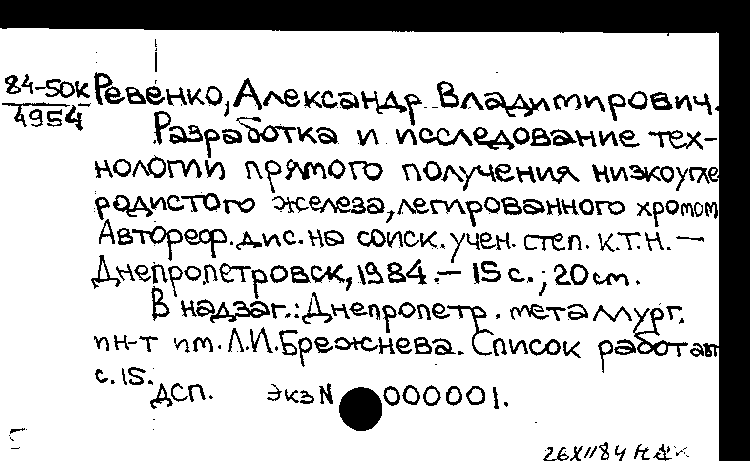 84-50к Ревенко, Александр Владимирович.
4954
Разработка и исследование тех-
нологии прямого получения низкоугле
родистого железа, легированного хромом
Автореф. дис. на соиск. учен. степ. к.т.н. —
Днепропетровск, 1984. — 15 с.; 20 см.
В надзаг.: Днепропетр. металлург.
ин-т им. Л.И. Брежнева. Список работ авт
с. 15.
ДСП. Экз N 000001.
26XII84